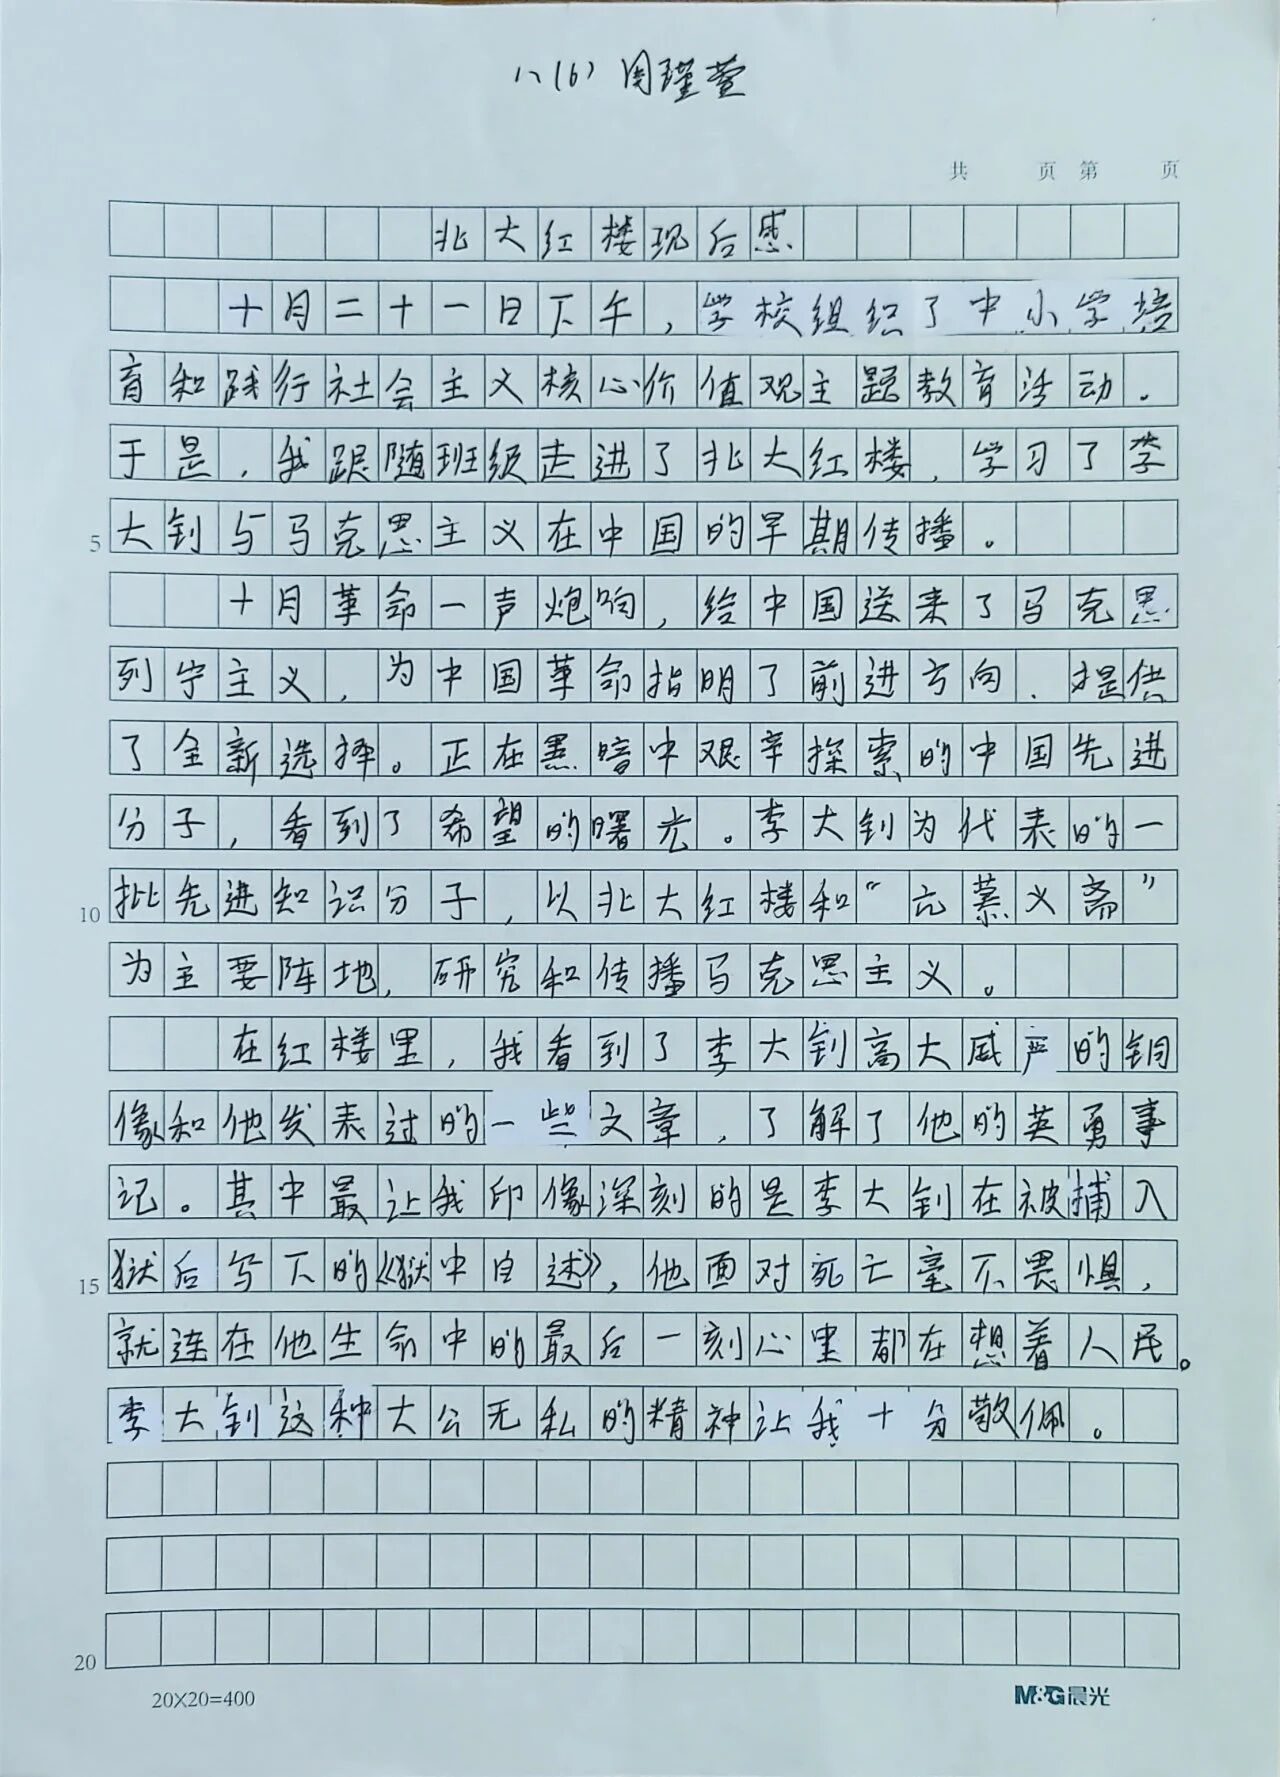 八(6) 周瑾萱
共 页 第 页
北大红楼观后感
十月二十一日下午，学校组织了中小学培
育和践行社会主义核心价值观主题教育活动。
于是，我跟随班级走进了北大红楼，学习了李
5 大钊与马克思主义在中国的早期传播。
十月革命一声炮响，给中国送来了马克思
列宁主义，为中国革命指明了前进方向、提供
了全新选择。正在黑暗中艰辛探索的中国先进
分子，看到了希望的曙光。李大钊为代表的一
10 批先进知识分子，以北大红楼和“亢慕义斋”
为主要阵地，研究和传播马克思主义。
在红楼里，我看到了李大钊高大威严的铜
像和他发表过的一些文章，了解了他的英勇事
记。其中最让我印像深刻的是李大钊在被捕入
15 狱后写下的《狱中自述》，他面对死亡毫不畏惧，
就连在他生命中的最后一刻心里都在想着人民。
李大钊这种大公无私的精神让我十分敬佩。
20
20×20=400
M&G晨光